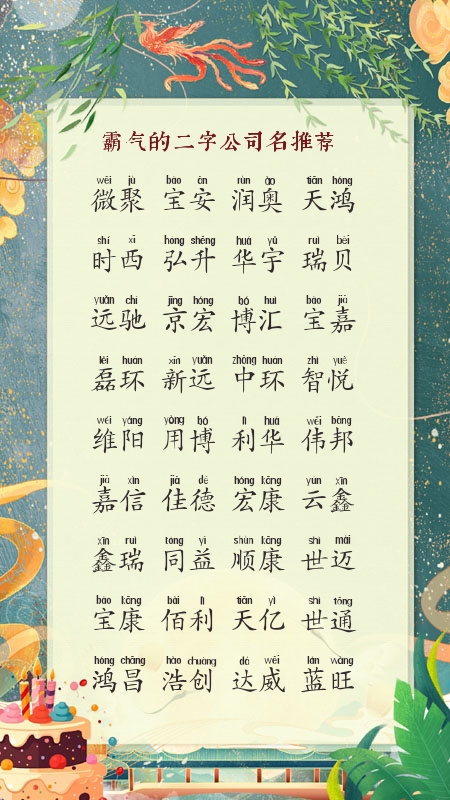 霸气的二字公司名推荐
wēi jù bǎo ān rùn ào tiān hóng
微聚 宝安 润奥 天鸿
shí xī hóng shēng huá yǔ ruì bèi
时西 弘升 华宇 瑞贝
yuǎn chí jīng hóng bó huì bǎo jiā
远驰 京宏 博汇 宝嘉
lěi huán xīn yuǎn zhōng huán zhì yuè
磊环 新远 中环 智悦
wéi yáng yòng bó lì huá wěi bāng
维阳 用博 利华 伟邦
jiā xìn jiā dé hóng kāng yún xīn
嘉信 佳德 宏康 云鑫
xīn ruì tóng yì shùn kāng shì mài
鑫瑞 同益 顺康 世迈
bǎo kāng bǎi lì tiān yì shì tōng
宝康 佰利 天亿 世通
hóng chāng hào chuàng dá wēi lán wàng
鸿昌 浩创 达威 蓝旺